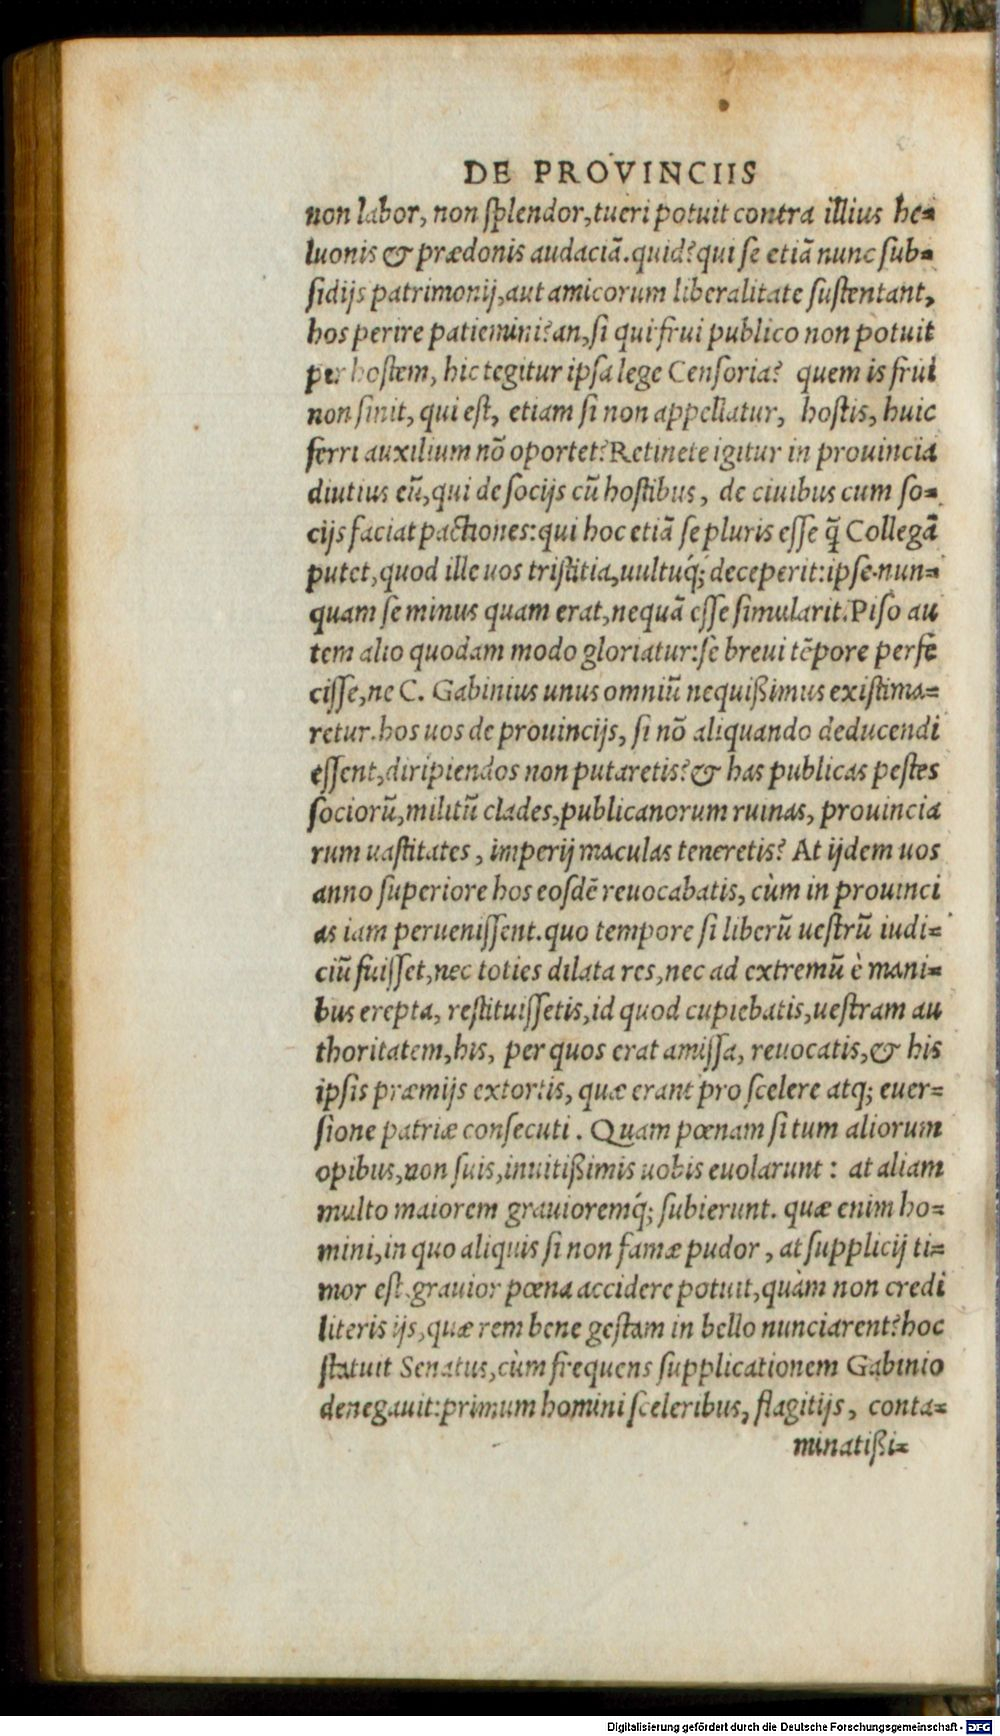 DE PROVINCIIS
non labor, non splendor, tueri potuit contra illius he=
luonis & prædonis audaciã. quid? qui se etiã nunc sub=
sidijs patrimonij, aut amicorum liberalitate sustentant,
hos perire patiemini? an, si qui frui publico non potuit
per hostem, hic tegitur ipsa lege Censoria? quem is frui
non sinit, qui est, etiam si non appellatur, hostis, huic
ferri auxilium nõ oportet? Retinete igitur in prouincia
diutius eũ, qui de socijs cũ hostibus, de ciuibus cum so=
cijs faciat pactiones: qui hoc etiã se pluris esse q̃ Collegã
putet, quod ille uos tristitia, uultuq́; deceperit: ipse nun=
quam se minus quam erat, nequã esse simularit. Piso au
tem alio quodam modo gloriatur: se breui tẽpore perfe
cisse, ne C. Gabinius unus omniũ nequißimus existima=
retur. hos uos de prouincijs, si nõ aliquando deducendi
essent, diripiendos non putaretis? & has publicas pestes
sociorũ, militũ clades, publicanorum ruinas, prouincia
rum uastitates, imperij maculas teneretis? At ijdem uos
anno superiore hos eosdẽ reuocabatis, cùm in prouinci
as iam peruenissent. quo tempore si liberũ uestrũ iudi=
ciũ fuisset, nec toties dilata res, nec ad extremũ è mani=
bus erepta, restituissetis, id quod cupiebatis, uestram au
thoritatem, his, per quos erat amissa, reuocatis, & his
ipsis præmijs extortis, quæ erant pro scelere atq; euer=
sione patriæ consecuti. Quam pœnam si tum aliorum
opibus, non suis, inuitißimis uobis euolarunt: at aliam
multo maiorem grauioremq́; subierunt. quæ enim ho=
mini, in quo aliquis si non famæ pudor, at supplicij ti=
mor est, grauior pœna accidere potuit, quàm non credi
literis ijs, quæ rem bene gestam in bello nunciarent? hoc
statuit Senatus, cùm frequens supplicationem Gabinio
denegauit: primum homini sceleribus, flagitijs, conta=
minatißi=
Digitalisierung gefördert durch die Deutsche Forschungsgemeinschaft - DFG